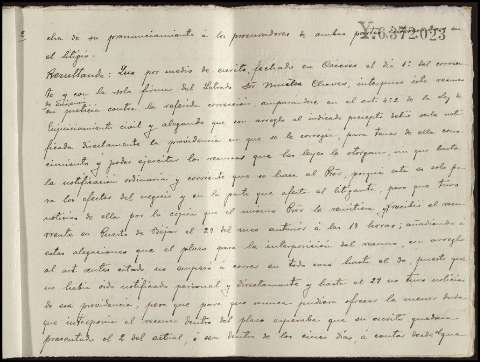 Y.6372023
cha de su pronunciamiento á los procuradores de ambas partes en
el litigio.
Resultando: Que por medio de escrito, fechado en Cáceres el dia 1º del corrien-
te y con la sola firma del Letrado Sr Muñoz Chaves, interpuso este recurso
en justicia contra la referida corrección, amparandose en el art 452 de la ley de
Enjuiciamiento civil y alegando que con arreglo al indicado precepto debió serle noti-
ficada directamente la providencia en que se le corregía, para tener de ella cono-
cimiento y poder ejercitar los recursos que las leyes le otorgan, sin que baste
la notificación ordinaria y corriente que se hace al Pror, porque esta es solo pa-
ra los efectos del negocio y en la parte que afecte al litigante, pero que tuvo
noticias de ella por la copia que el mismo Pror le remitiera, y recibió el
en Puerto de Béjar el 29 del mes anterior á las 13 horas; añadiendo á
estas alegaciones que el plazo para la interposición del recurso, con arreglo
al art antes citado no empezó á correr en todo caso hasta el 30, puesto que
no habia sido notificado personal y directamente y hasta el 29 no tuvo noticia
de esa providencia, pero que para que nunca pudiera ofrecer la menor duda
que interponia el recurso dentro del plazo esperaba que su escrito quedara
presentado el 2 del actual, ó sea dentro de los cinco dias á contar desde que